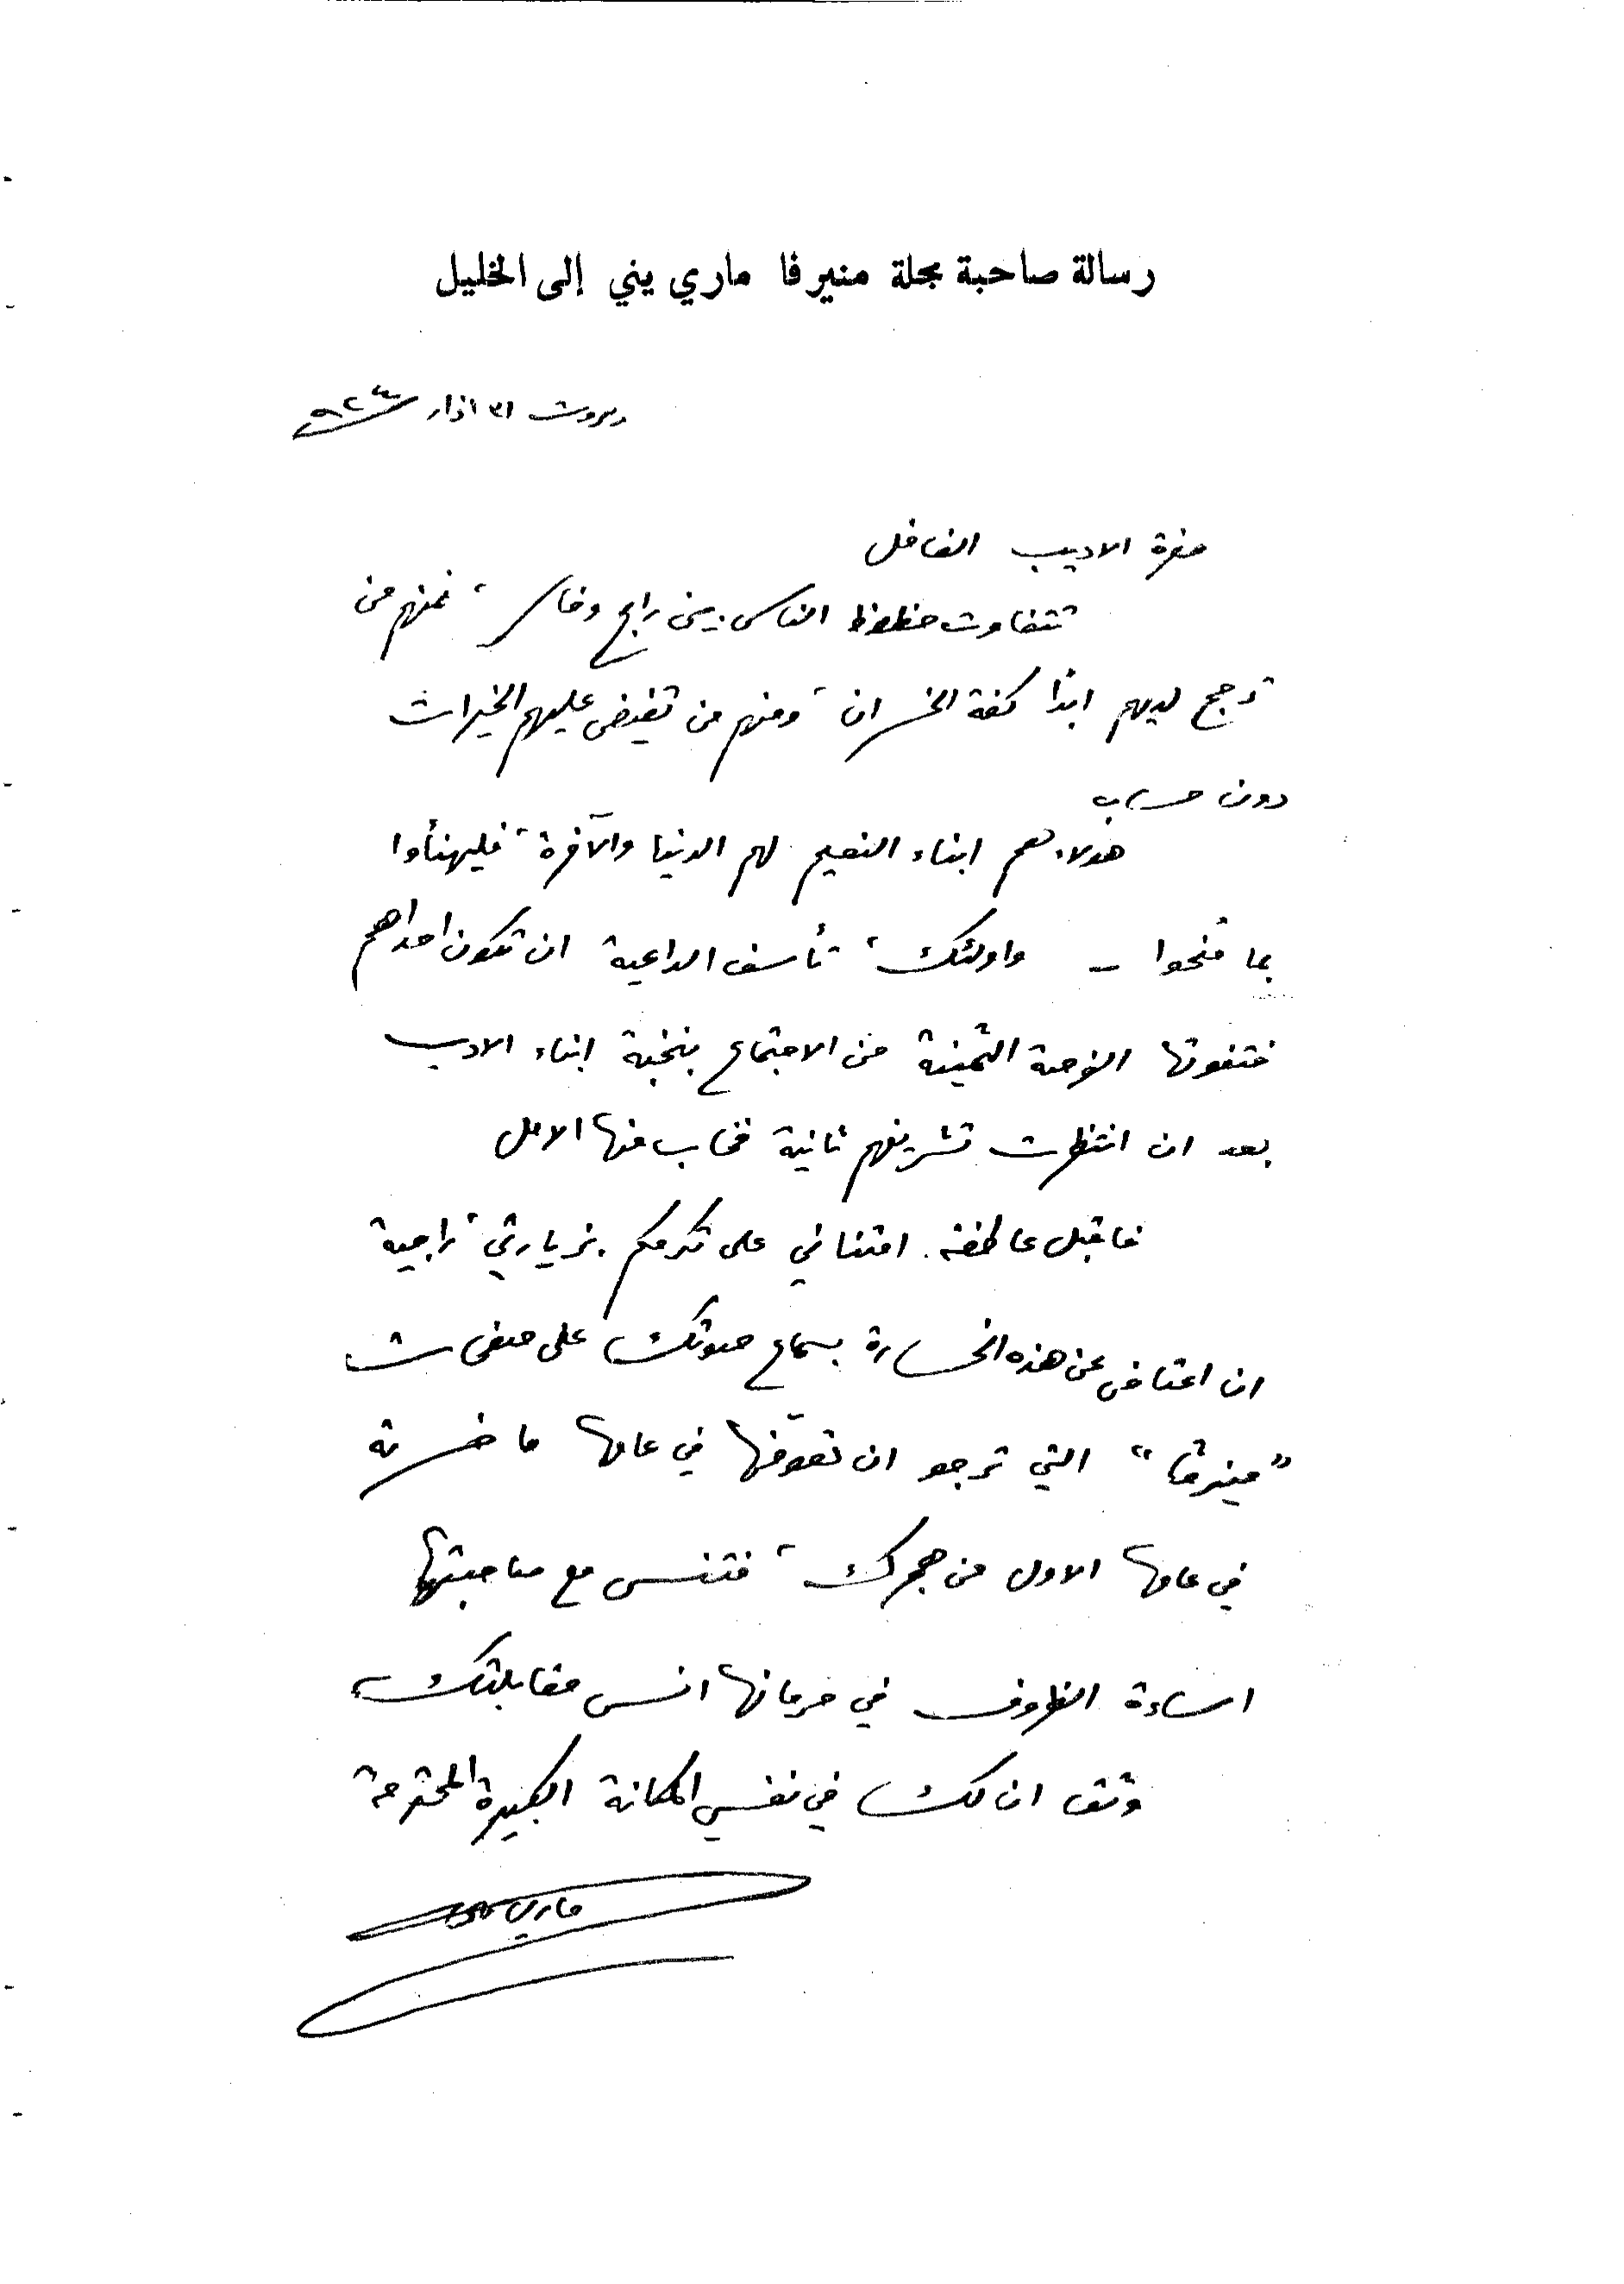 رسالة صاحبة مجلة منيرفا ماري يني إلى الخليل
بيروت ٣١ اذار ٩٢٤
حضرة الاديب الفاضل
تتفاوت حظوظ الناس بين رابح وخاسر، فمنهم من
ترجح لديهم ابدًا كفة الخسران، ومنهم من تفيض عليهم الخيرات
دون حساب
هؤلاء هم ابناء النعيم لهم الدنيا والآخرة، فليهنأوا
بما مُنحوا – واولئك، تأسف الداعية ان تكون احداهم
فتفوتها الفرصة الثمينة من الاجتماع بنخبة ابناء الادب
بعد ان انتظرت تشريفهم ثانية فخاب منها الامل
فاقبل عاطفة امتناني على تكرمكم بزيارتي، راجية
ان اعتاض عن هذه الخسارة بسماع صوتك على صفحات
"مينرڤا" التي ترجو ان تعوّضها في عامها ما خسرته
في عامها الاول من هجرك، فتنسى مع صاحبتها
اساءة الظروف في حرمانها انس مقابلتك
وثق ان لك في نفسي المكانة الكبيرة المحترمة
ماري يني